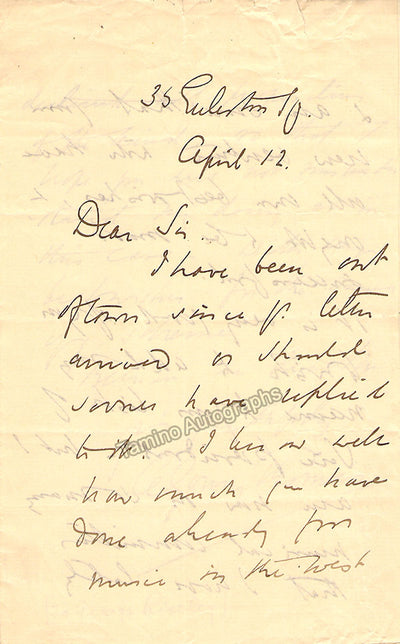 35 Eccleston Sq.
April 12.
Dear Sir.
I have been out
of town since yr. letter
arrived or should
sooner have replied
to it. I know well
how much you have
done already for
music in the West
Tamino Autographs